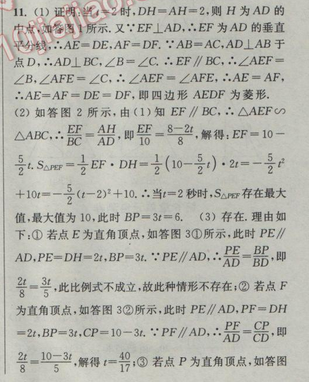 11. (1) 证明:当 t=2 时,DH=AH=2,则 H 为 AD 的
中点,如答图 1 所示. 又∵EF⊥AD,∴EF 为 AD 的垂直
平分线,∴AE=DE,AF=DF. ∵AB=AC,AD⊥AB于
点 D,∴AD⊥BC,∠B=∠C. ∴EF∥BC,∴∠AEF=
∠B,∠AFE=∠C,∴∠AEF=∠AFE,∴AE=AF,
∴AE=AF=DE=DF,即四边形 AEDF 为菱形.
(2) 如答图 2 所示,由(1)知 EF∥BC,∴△AEF∽
△ABC,∴EF/BC=AH/AD,即EF/10=(8-2t)/8,解得:EF=10-
5/2 t. S△PEF=1/2 EF·DH=1/2(10-5/2 t)·2t=-5/2 t²
+10t=-5/2(t-2)²+10.∴当t=2 秒时,S△PEF存在最大
值,最大值为 10,此时 BP=3t=6. (3) 存在. 理由如
下:① 若点 E 为直角顶点,如答图 3①所示,此时 PE∥
AD,PE=DH=2t,BP=3t. ∵PE∥AD,∴PE/AD=BP/BD,即
2t/8=3t/5,此比例式不成立,故此种情形不存在;② 若点 F
为直角顶点,如答图 3②所示,此时 PE∥AD,PF=DH
=2t,BP=3t,CP=10-3t. ∵PF∥AD,∴PF/AD=CP/CD,即
2t/8=(10-3t)/5,解得 t=40/17;③ 若点 P 为直角顶点,如答图